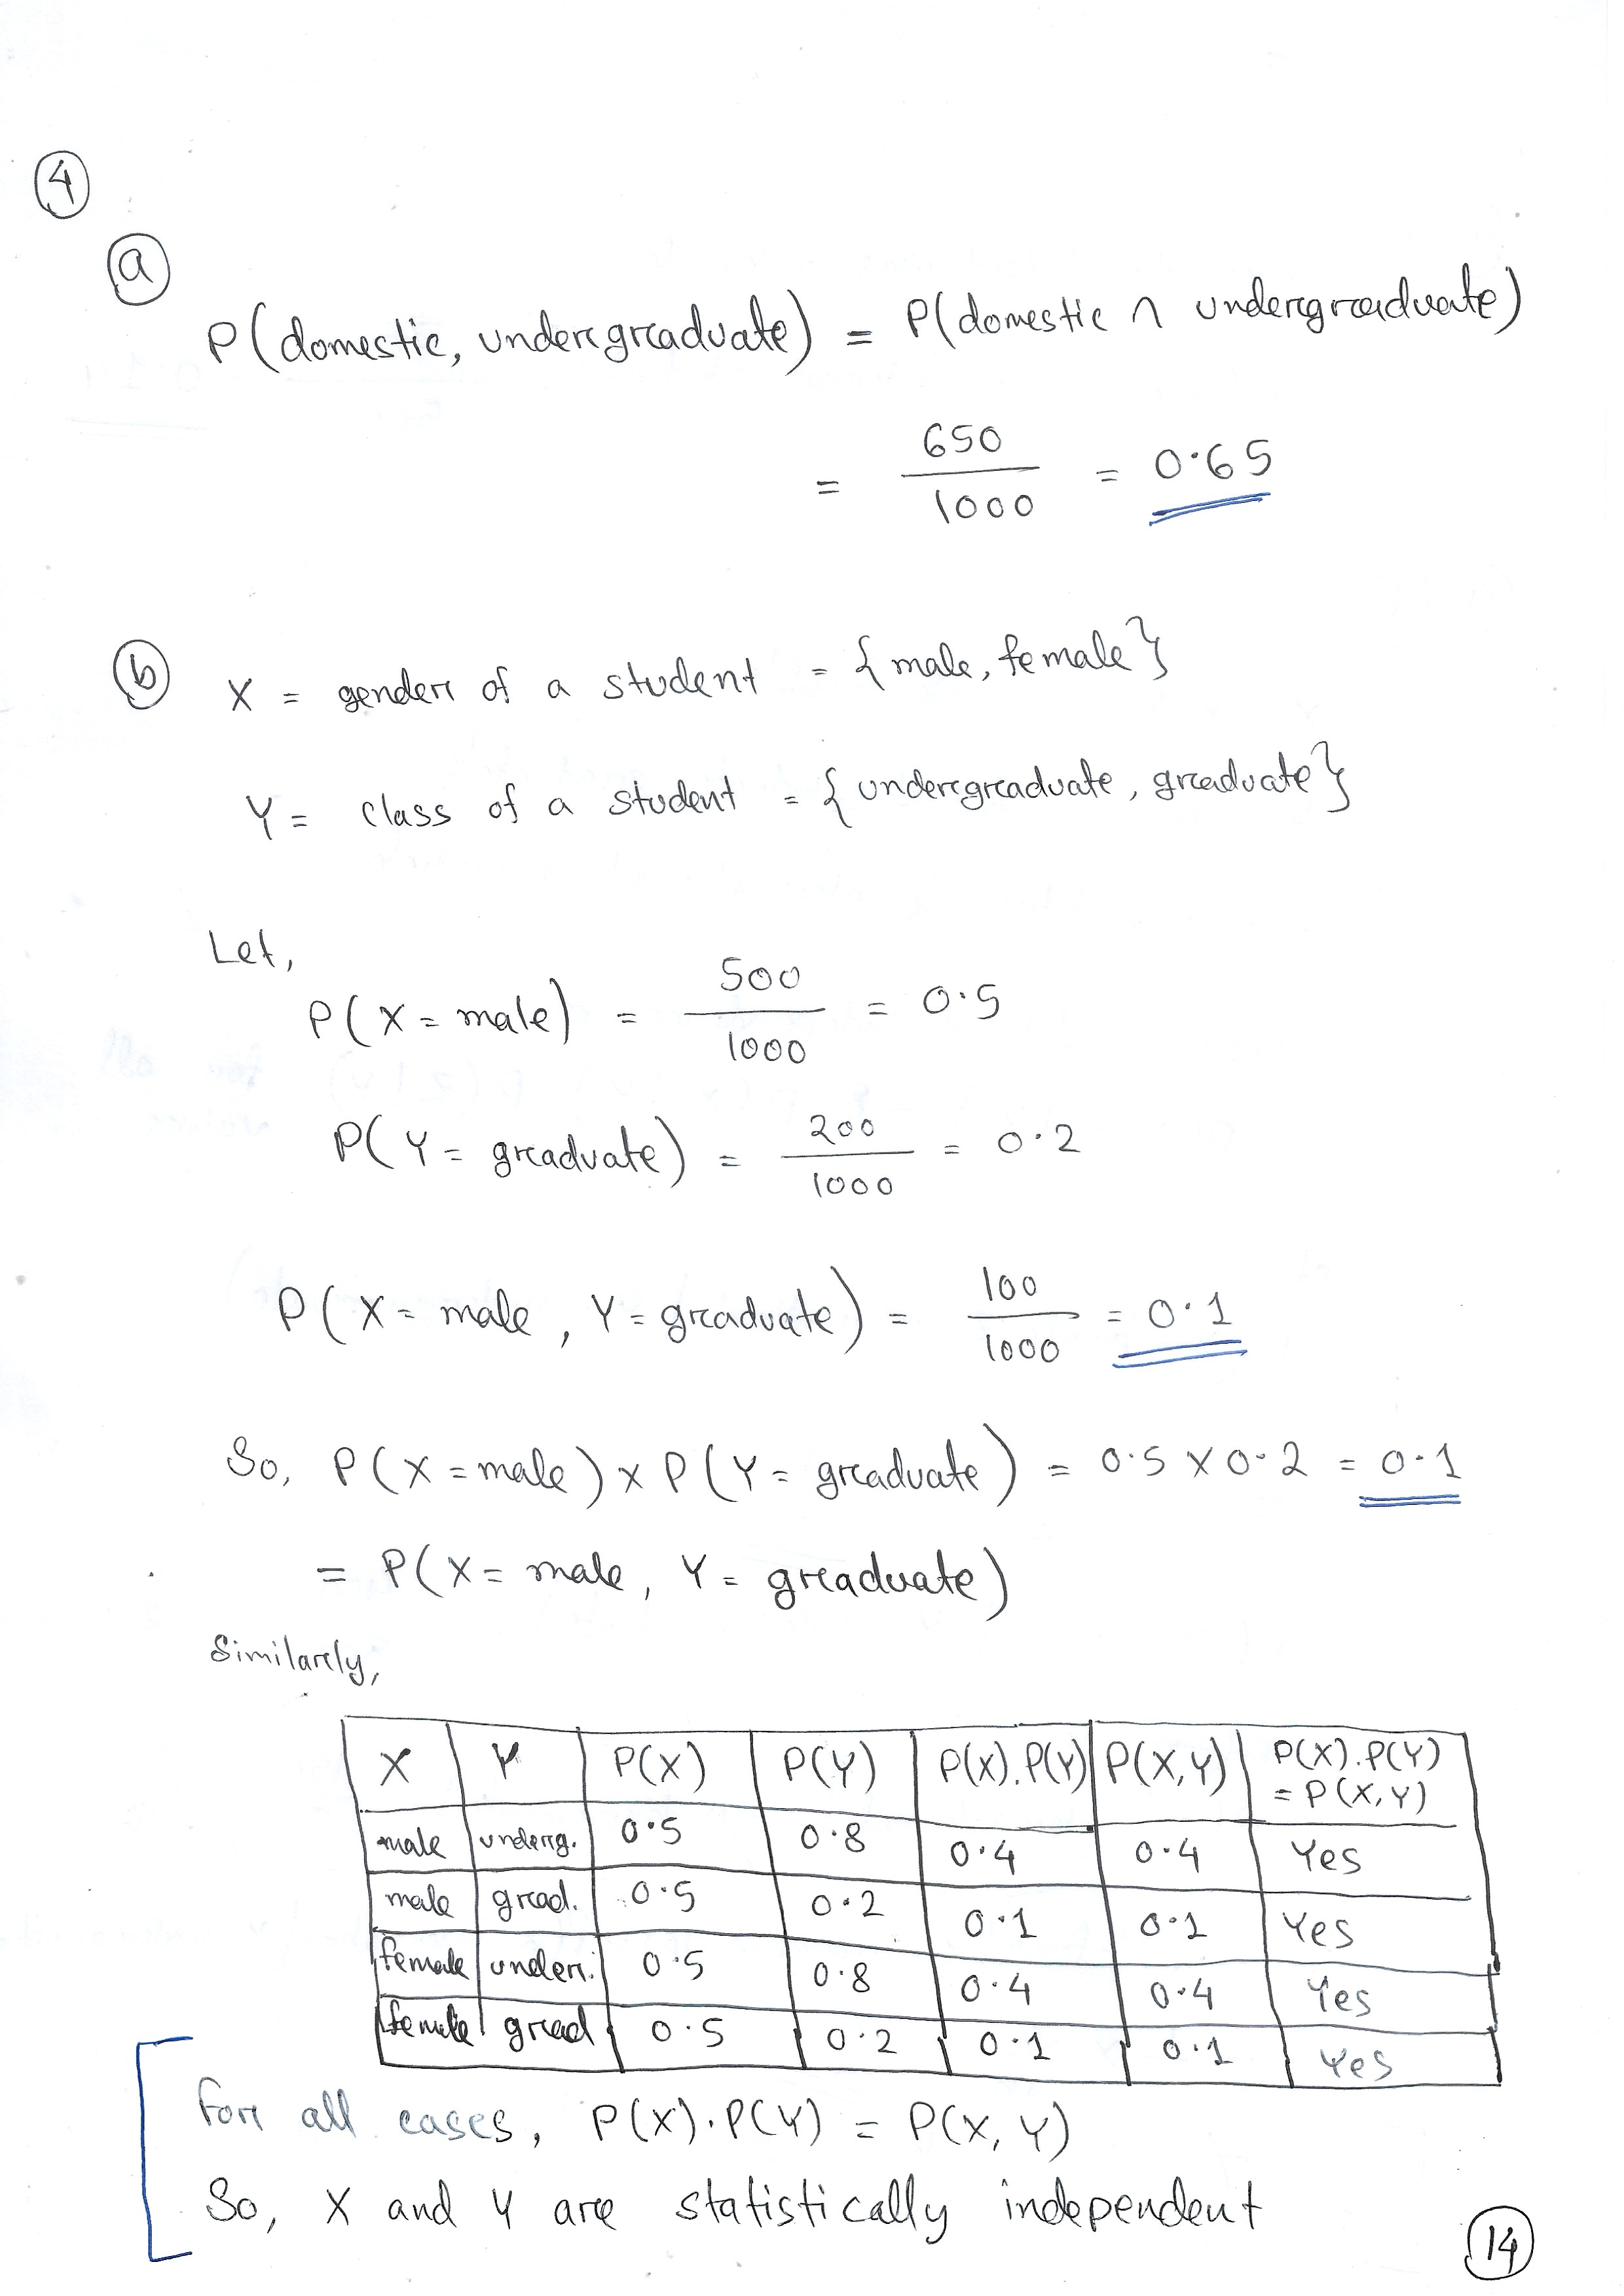 4
a
P(domestic, undergraduate) = P(domestic ∩ undergraduate)
= 650/1000 = 0.65
b
X = gender of a student = {male, female}
Y = class of a student = {undergraduate, graduate}
Let,
P(X = male) = 500/1000 = 0.5
P(Y = graduate) = 200/1000 = 0.2
P(X = male, Y = graduate) = 100/1000 = 0.1
So, P(X = male) x P(Y = graduate) = 0.5 x 0.2 = 0.1
= P(X = male, Y = graduate)
Similarly,
X Y P(X) P(Y) P(X).P(Y) P(X,Y) P(X).P(Y) = P(X,Y)
male underg. 0.5 0.8 0.4 0.4 Yes
male grad. 0.5 0.2 0.1 0.1 Yes
female under. 0.5 0.8 0.4 0.4 Yes
female grad 0.5 0.2 0.1 0.1 Yes
For all cases, P(X).P(Y) = P(X,Y)
So, X and Y are statistically independent
14